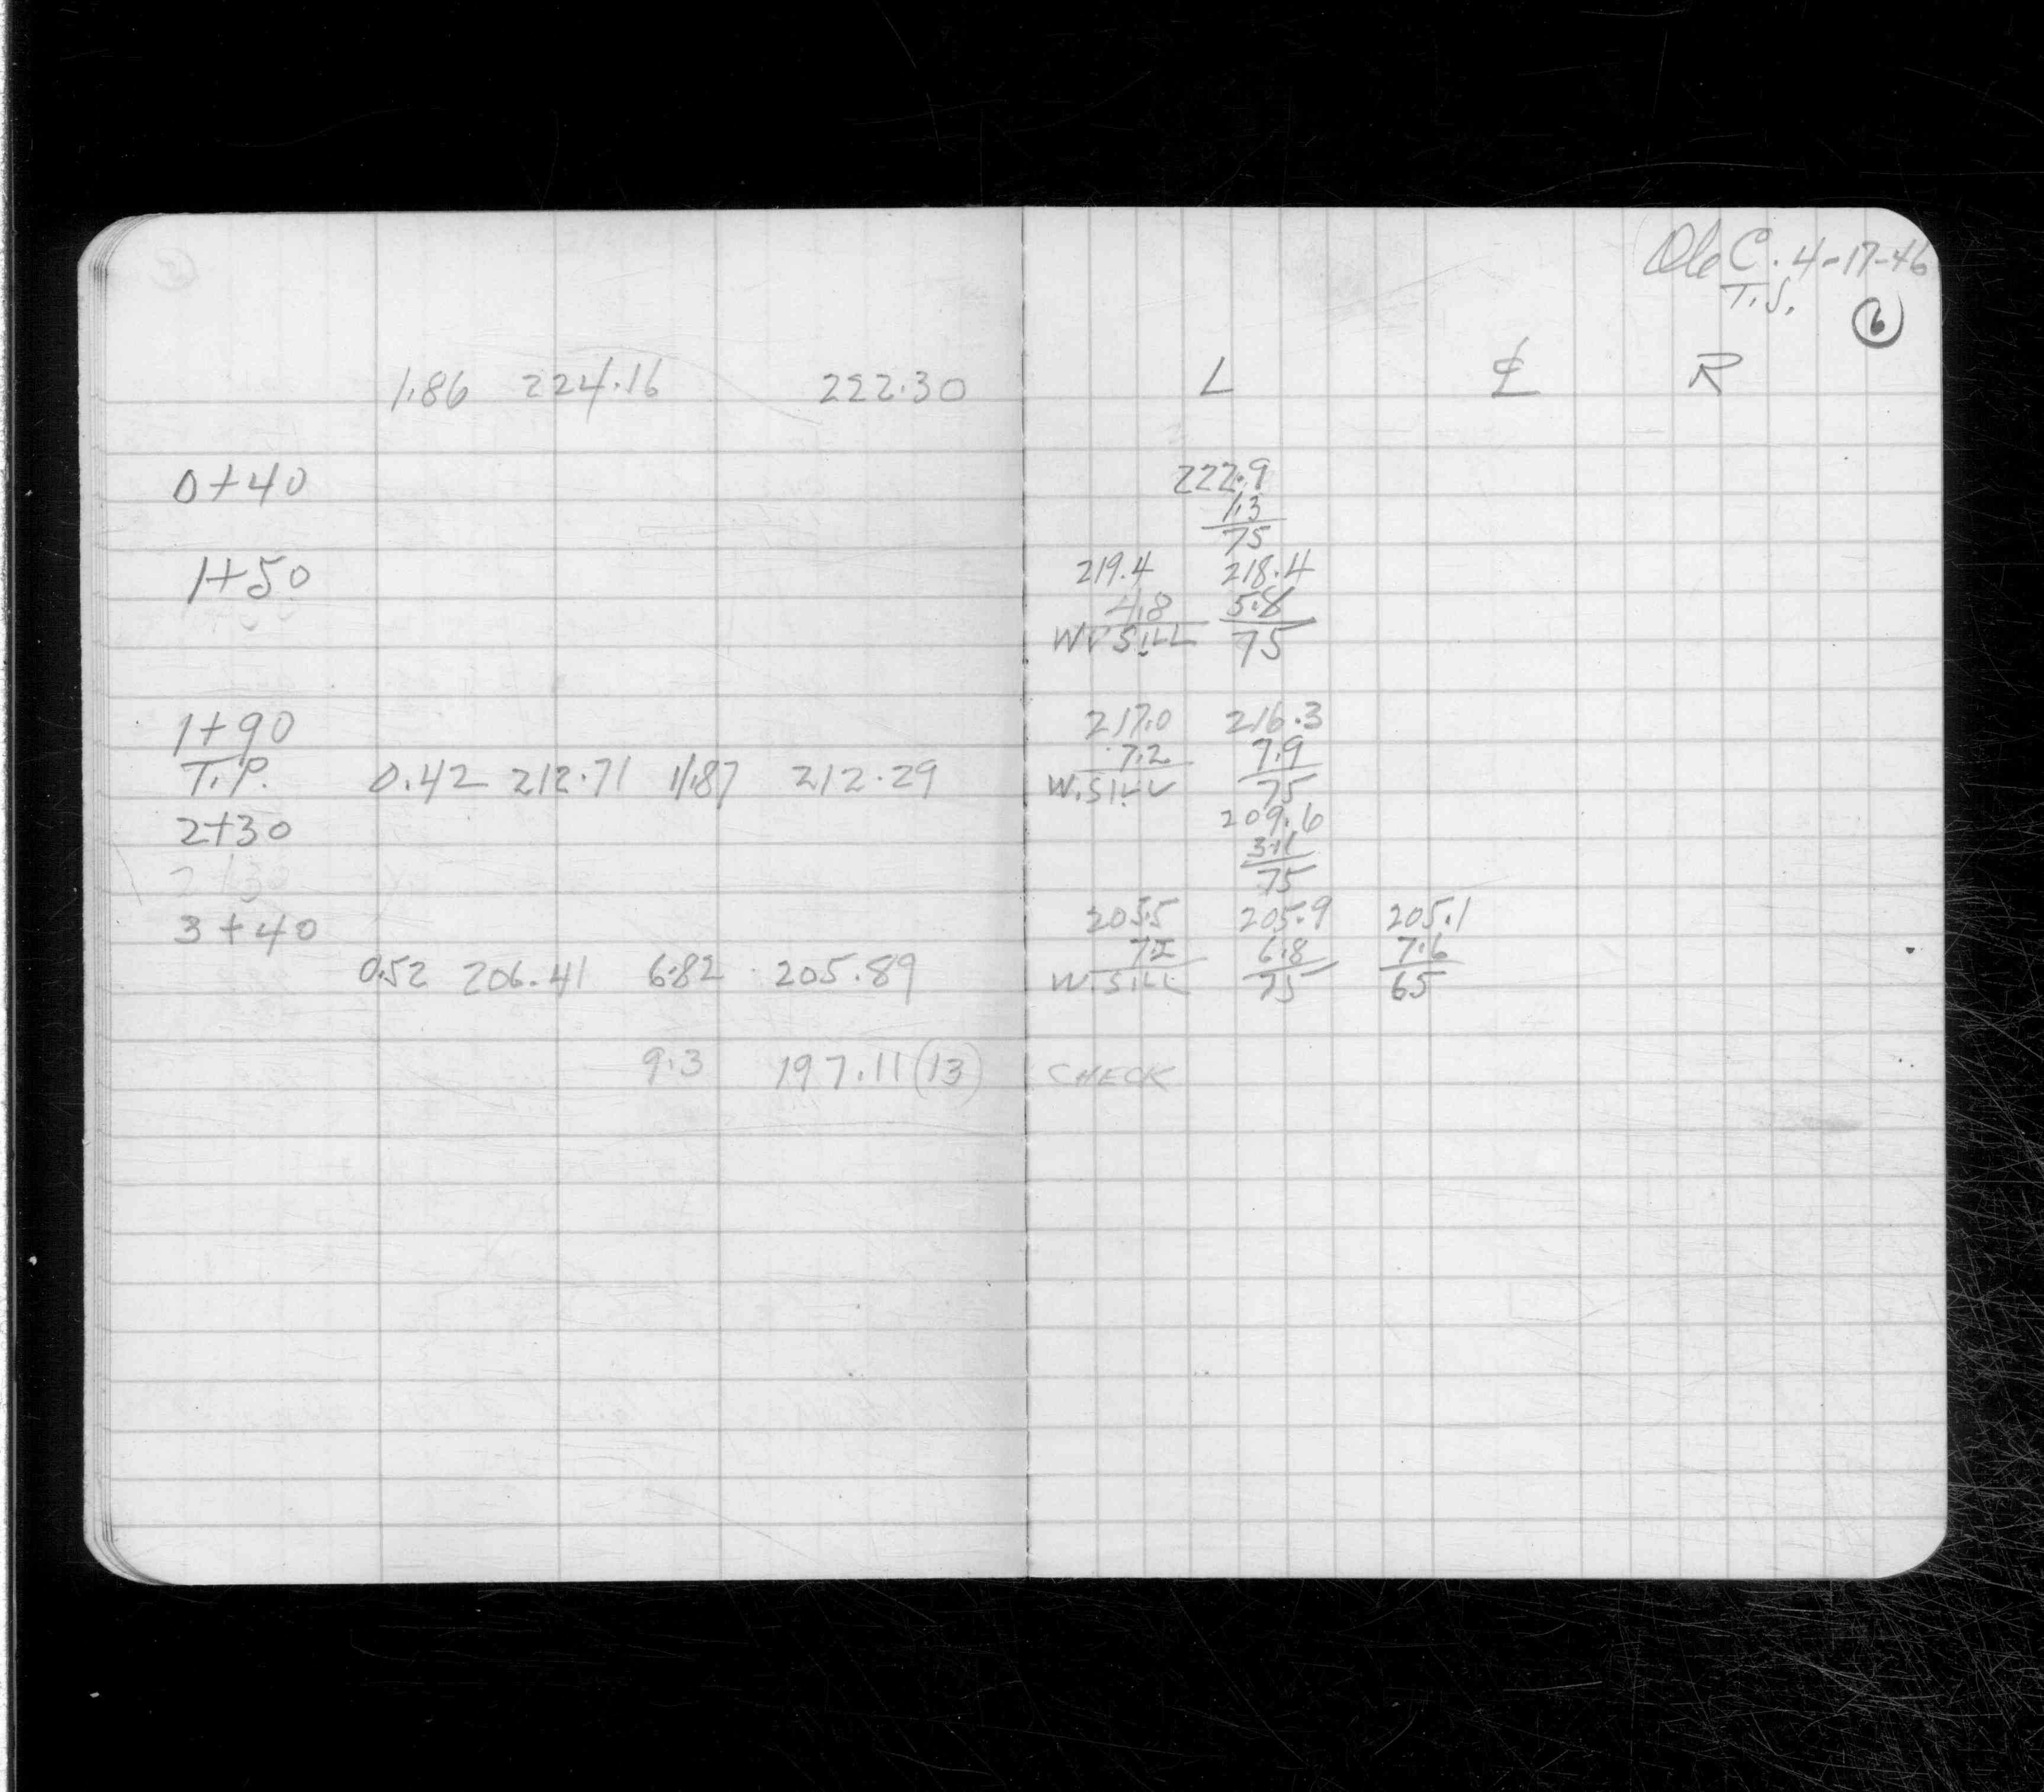 Ole C. 4-17-46
T.S.
6
1.86 224.16 222.30 L ℄ R
0+40 222.9
1.3
75
1+50 219.4 218.4
4.8 5.8
W. SILL 75
1+90 217.0 216.3
7.2 7.9
T.P. 0.42 212.71 11.87 212.29 W. SILL 75
2+30 209.6
3.1
75
3+40 205.5 205.9 205.1
7.2 6.8 7.6
0.52 206.41 6.82 205.89 W. SILL 75 65
9.3 197.11 (13) CHECK